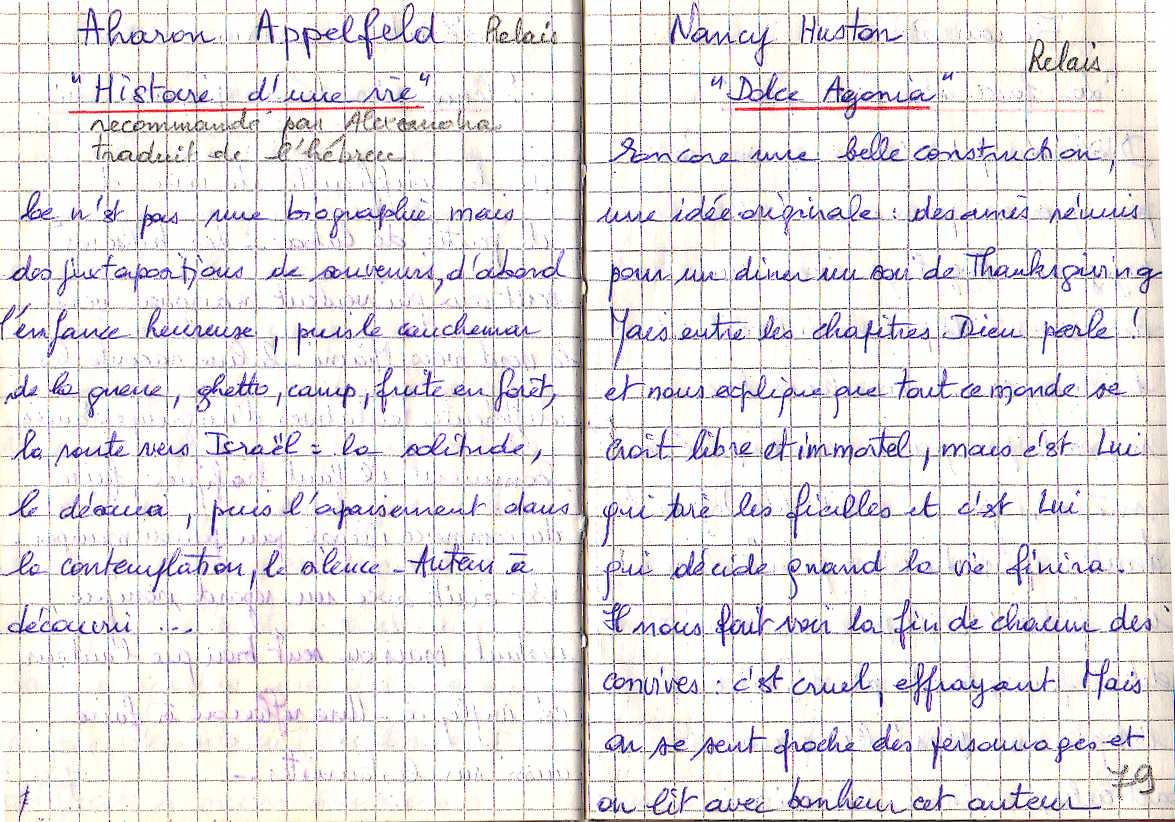 Aharon Appelfeld Relais
"Histoire d'une vie"
recommandé par Alexandra
traduit de l'hébreu
Ce n'est pas une biographie mais
des juxtapositions de souvenirs, d'abord
l'enfance heureuse, puis le cauchemar
de la guerre, ghetto, camp, fuite en forêt,
la route vers Israël = la solitude,
le désarroi, puis l'apaisement dans
la contemplation, le silence - Auteur à
découvrir ...
Nancy Huston
Relais
"Dolce Agonia"
Encore une belle construction,
une idée originale : des amis réunis
pour un diner un soir de Thanksgiving
Mais entre les chapitres Dieu parle !
et nous explique que tout ce monde se
croit libre et immortel, mais c'est Lui
qui tire les ficelles et c'est Lui
qui décide quand la vie finira.
Il nous fait voir la fin de chacun des
convives : c'est cruel, effrayant Mais
on se sent proche des personnages et
on lit avec bonheur cet auteur
79